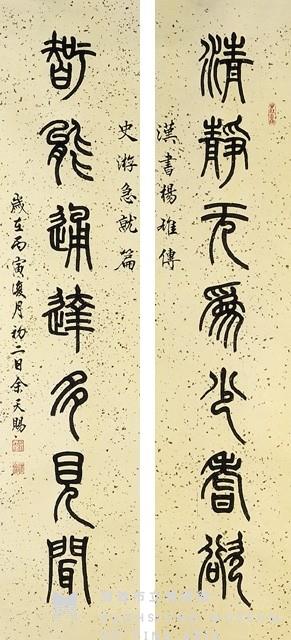 清靜无為少耆欲
漢書楊雄傳
史游急就篇
智能通達多見聞
歲在丙寅復月初二日余天賜